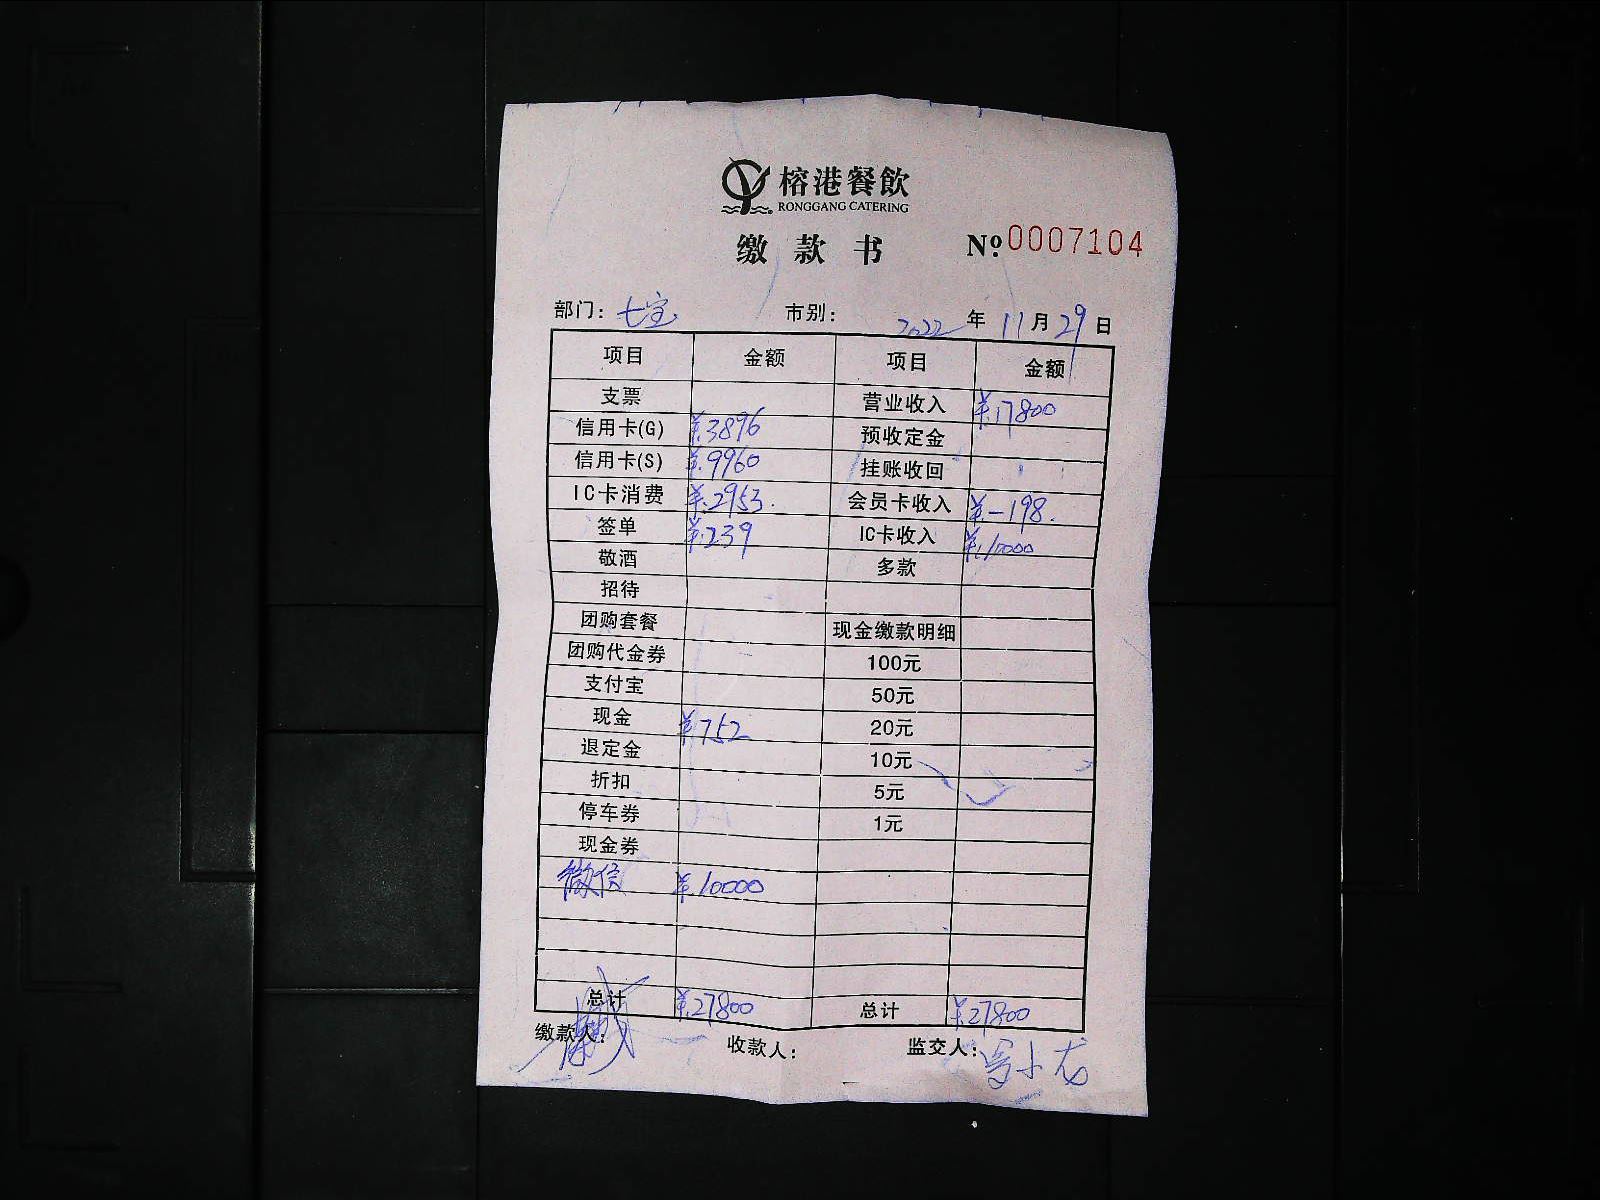 榕港餐飲
RONGGANG CATERING
缴款书 Nº 0007104
部门: 七宝 市别: 2022年11月29日
项目 金额 项目 金额
支票 营业收入 ¥.17800
信用卡(G) ¥.3896 预收定金
信用卡(S) ¥.9960 挂账收回
IC卡消费 ¥.2953. 会员卡收入 ¥-198.
签单 ¥.239 IC卡收入 ¥.10000
敬酒 多款
招待
团购套餐 现金缴款明细
团购代金券 100元
支付宝 50元
现金 ¥752 20元
退定金 10元
折扣 5元
停车券 1元
现金券
微信 ¥.10000
总计 ¥.27800 总计 ¥.27800
缴款人: 收款人: 监交人: 小龙